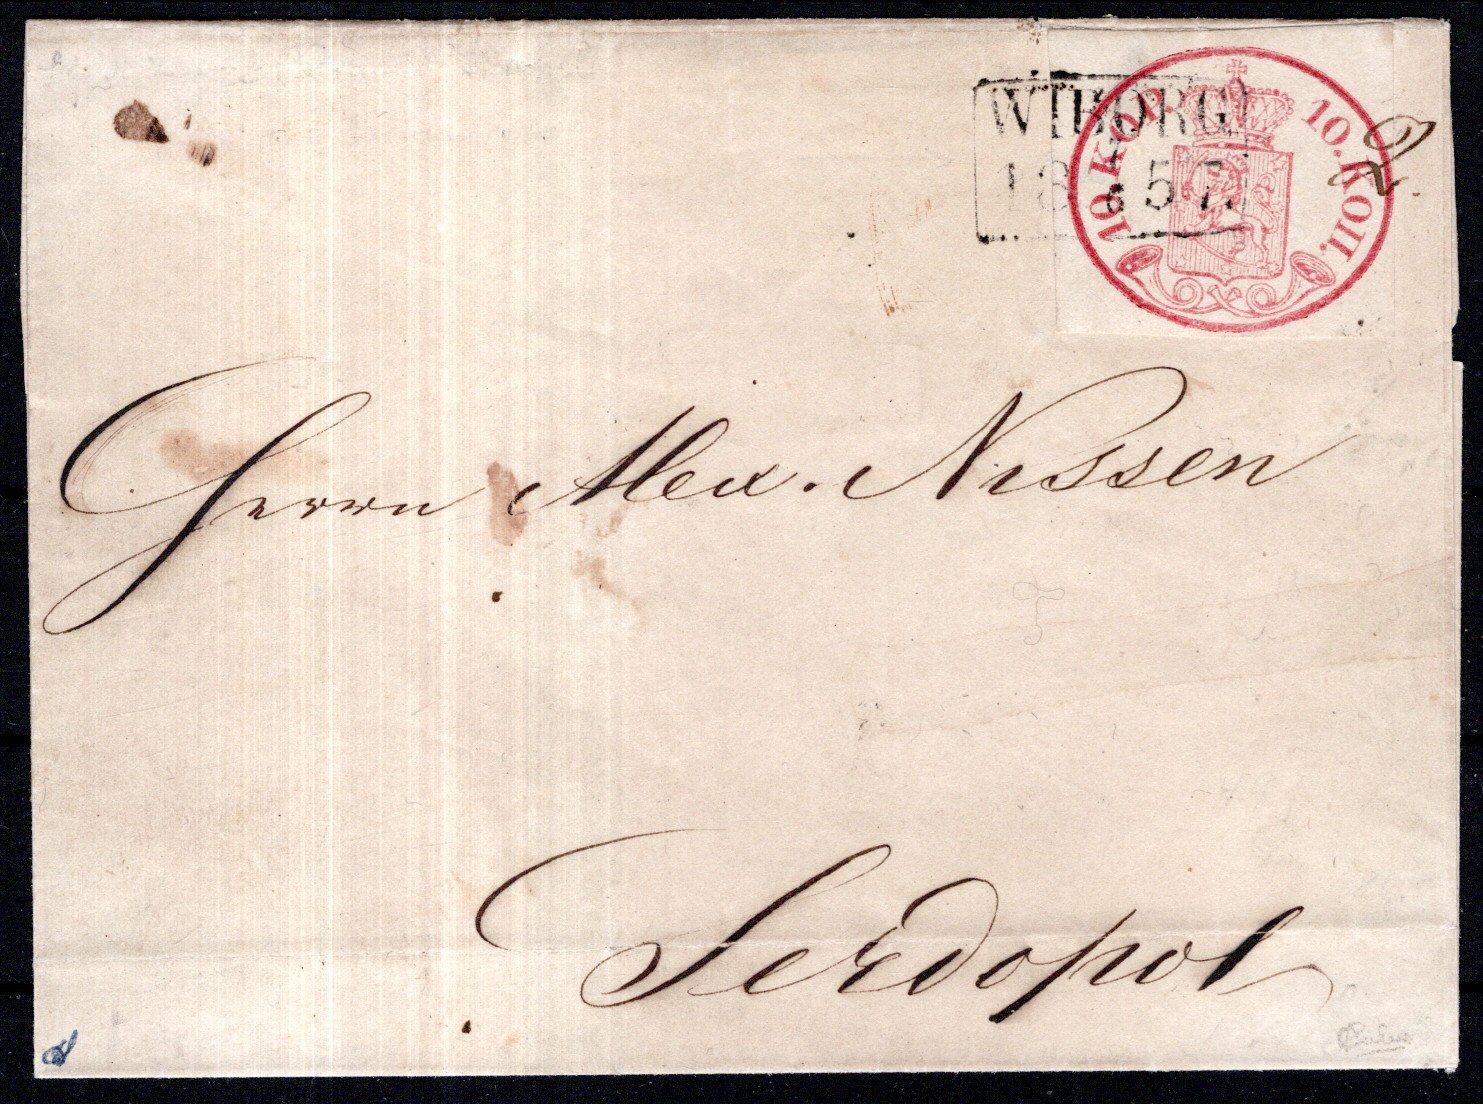 WIBORG
18 6/7 57.
10. KOP. 10. КОП.
2.
Herrn Alex. Nissen
Serdopol